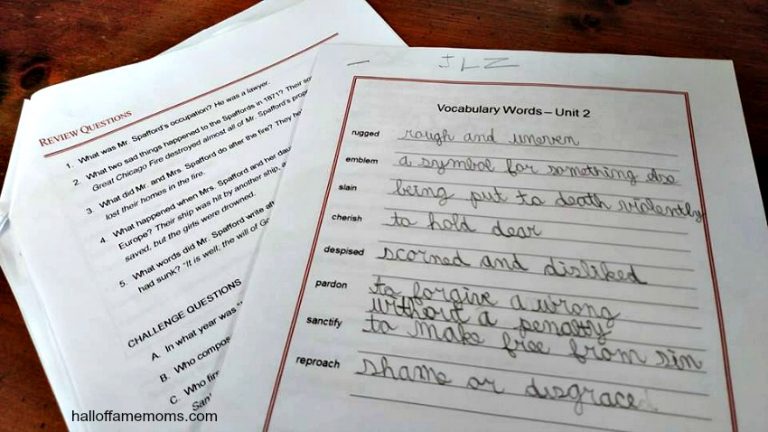 REVIEW QUESTIONS
1. What was Mr. Spafford's occupation? He was a lawyer.
2. What two sad things happened to the Spaffords in 1871? Their
Great Chicago Fire destroyed almost all of Mr. Spafford's
3. What did Mr. and Mrs. Spafford do after the fire? They
lost their homes in the fire.
4. What happened when Mrs. Spafford and her
Europe? Their ship was hit by another ship,
saved, but the girls were drowned.
5. What words did Mr. Spafford write
had sunk? "It is well, the will of
CHALLENGE QUESTIONS
A. In what year was
B. Who
C. Who
Vocabulary Words – Unit 2
rugged rough and uneven
emblem a symbol for something else
slain being put to death violently
cherish to hold dear
despised scorned and disliked
pardon to forgive a wrong
without a penalty
sanctify to make free from sin
reproach shame or disgrace
halloffamemoms.com